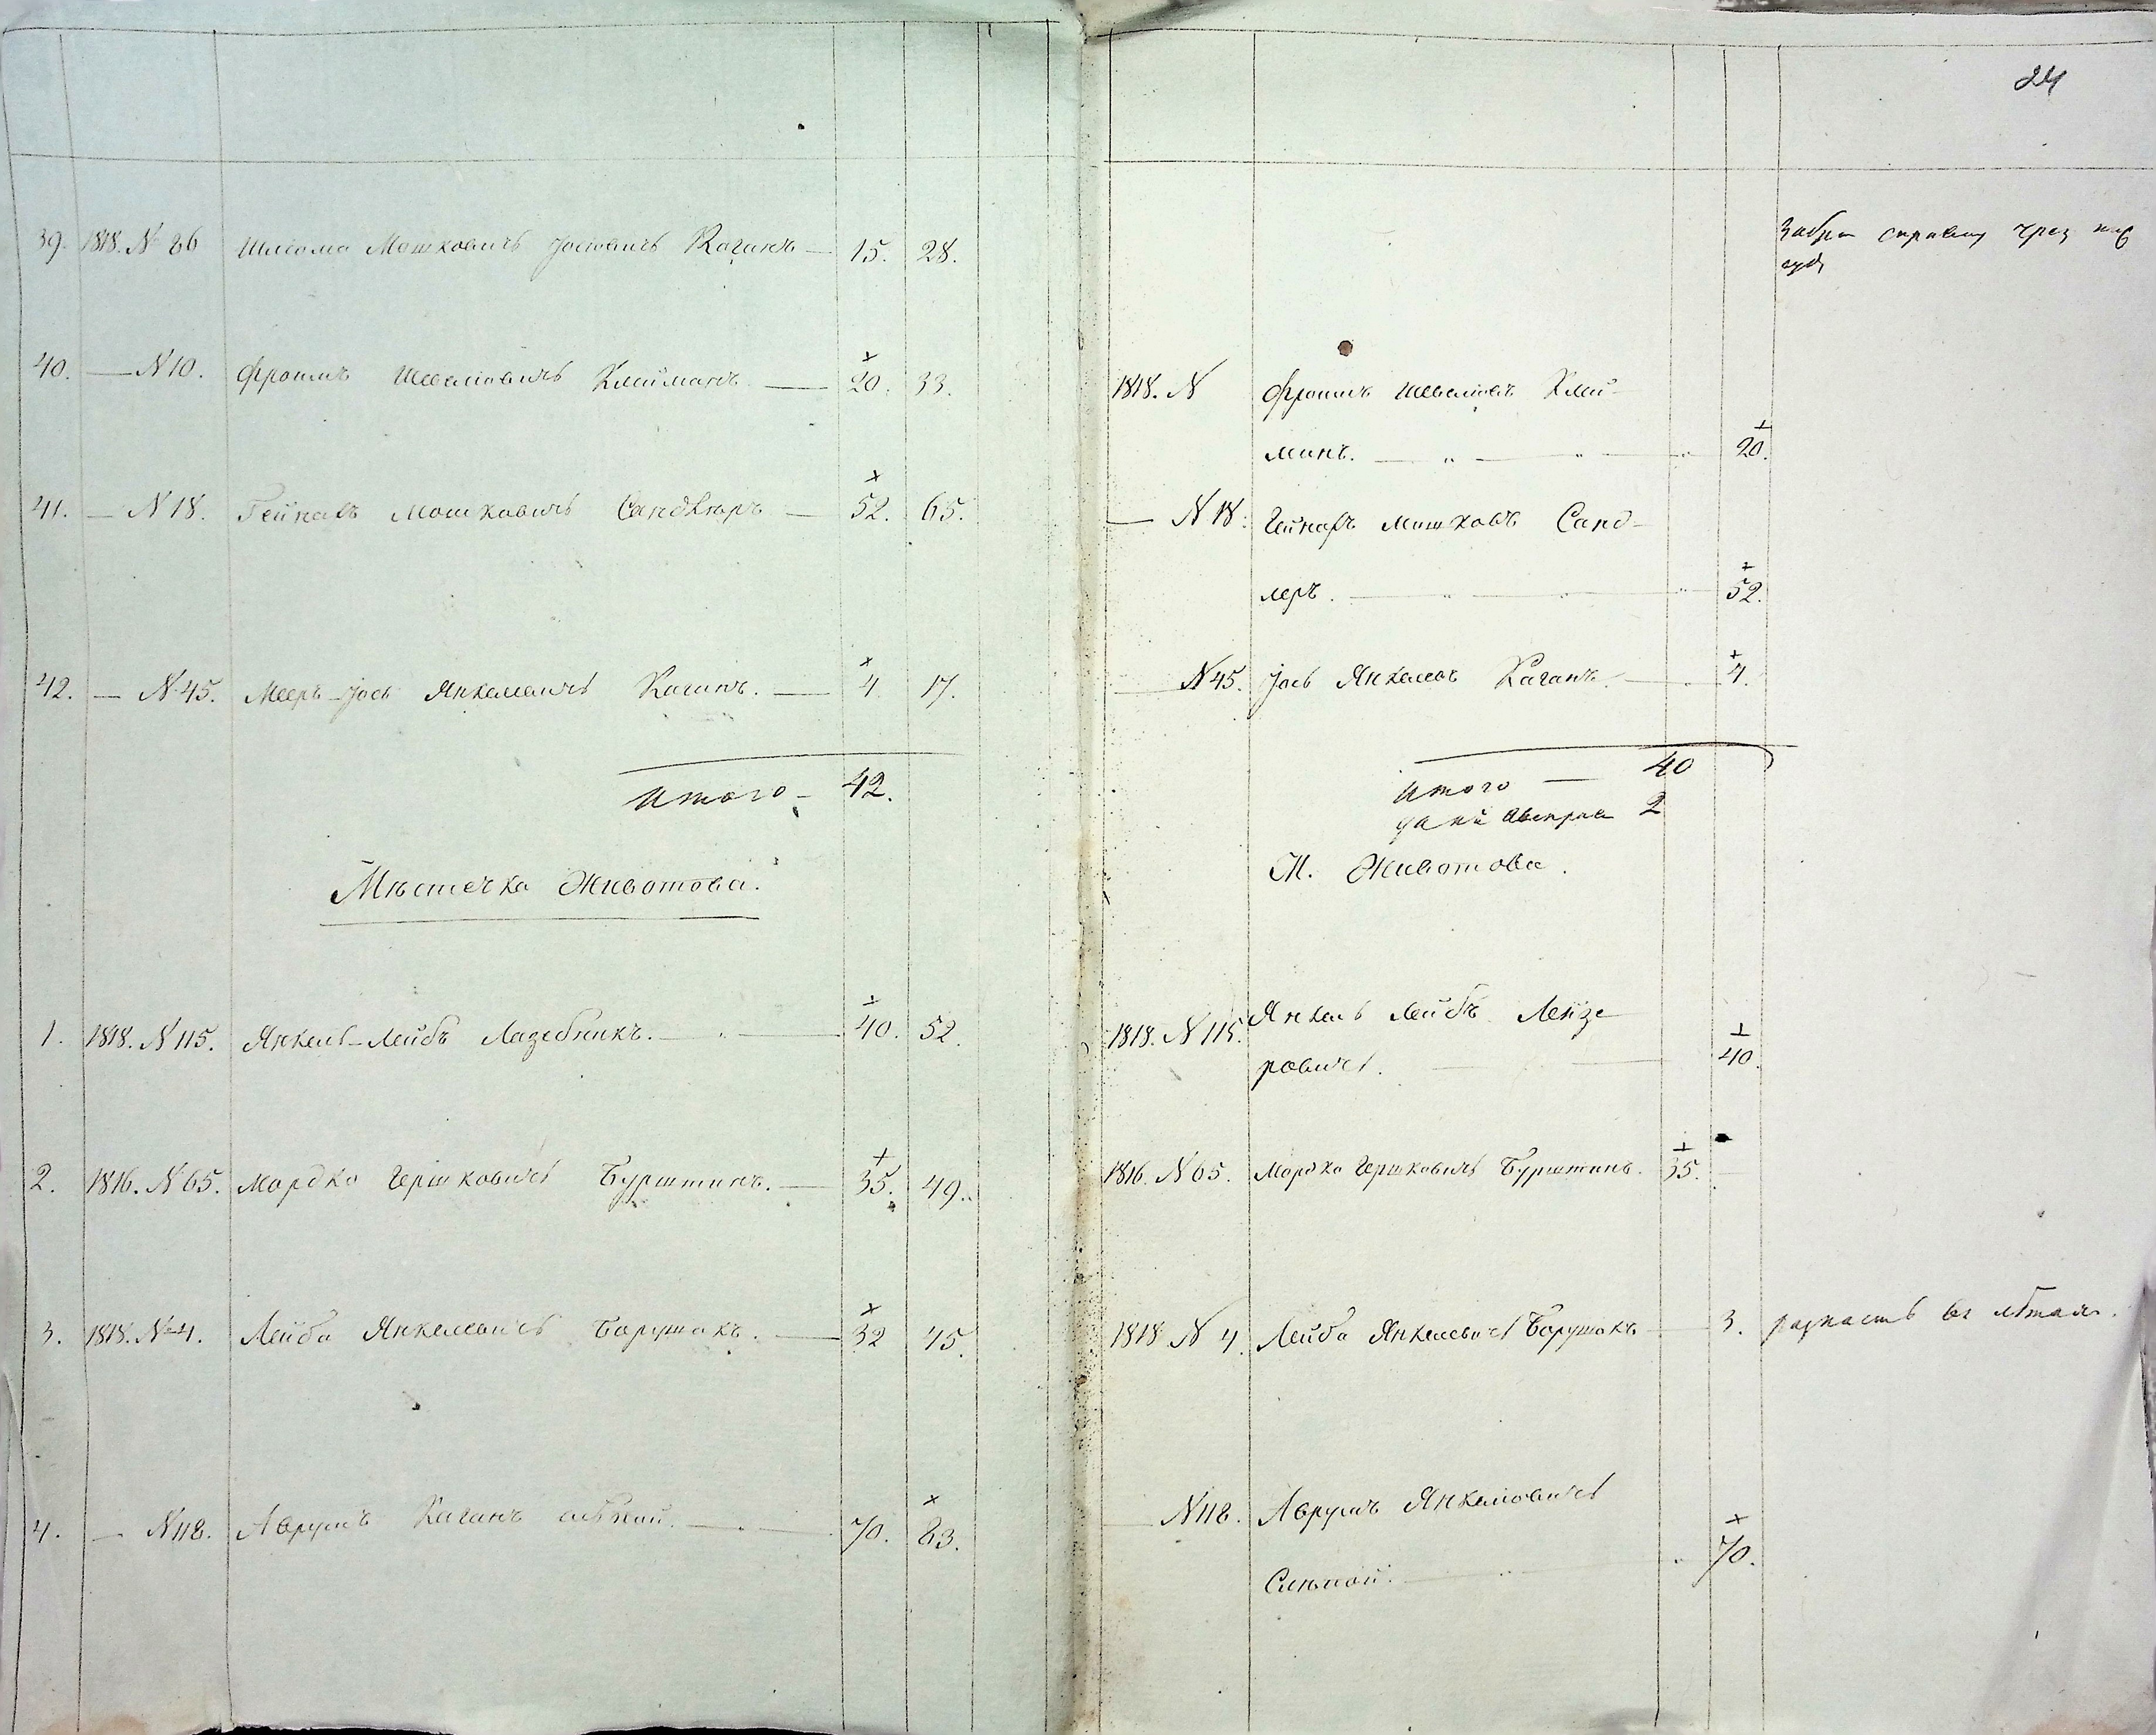 39. 1818. № 86 Шлеома Мошковичъ Іосіовичъ Каганъ — 15. 28.
40. — № 10. Фроимъ Шевелiовичъ Клейманъ. — 20. 33.
41. — № 18. Гейнахъ Мошковичъ Сандлюръ — 52. 65.
42. — № 45. Мееръ-Іось Янкелевичъ Каганъ. — 4. 17.
Итого — 42.
Мѣстечка Животова.
1. 1818. № 115. Янкель-Лейбъ Лазебникъ. — 40. 52.
2. 1816. № 65. Мордко Гершковичъ Бурштинъ. — 35. 49.
3. 1818. № 4. Лейба Янкелевичъ Борушакъ. — 32 45.
4. — № 118. Аврумъ Каганъ слѣпой. — 70. 83.
24
справку чрез
суд
1818. № Фроимъ Шевелiовъ Клей-
манъ. — 20.
— № 18. Гейнахъ Мошковъ Санд-
леръ. — 52.
№ 45. Іось Янкелевъ Каганъ. — 4.
Итого — 40
2
М. Животова.
1818. № 115. Янкель Лейбъ Лейзе
ровичъ. — 40.
1816. № 65. Мордко Гершковичъ Бурштинъ. 35.
1818 № 4. Лейба Янкелевичъ Борушакъ — 3. разность въ лѣтахъ.
№ 118. Аврумъ Янкелiовичъ
Слѣпой. — 70.